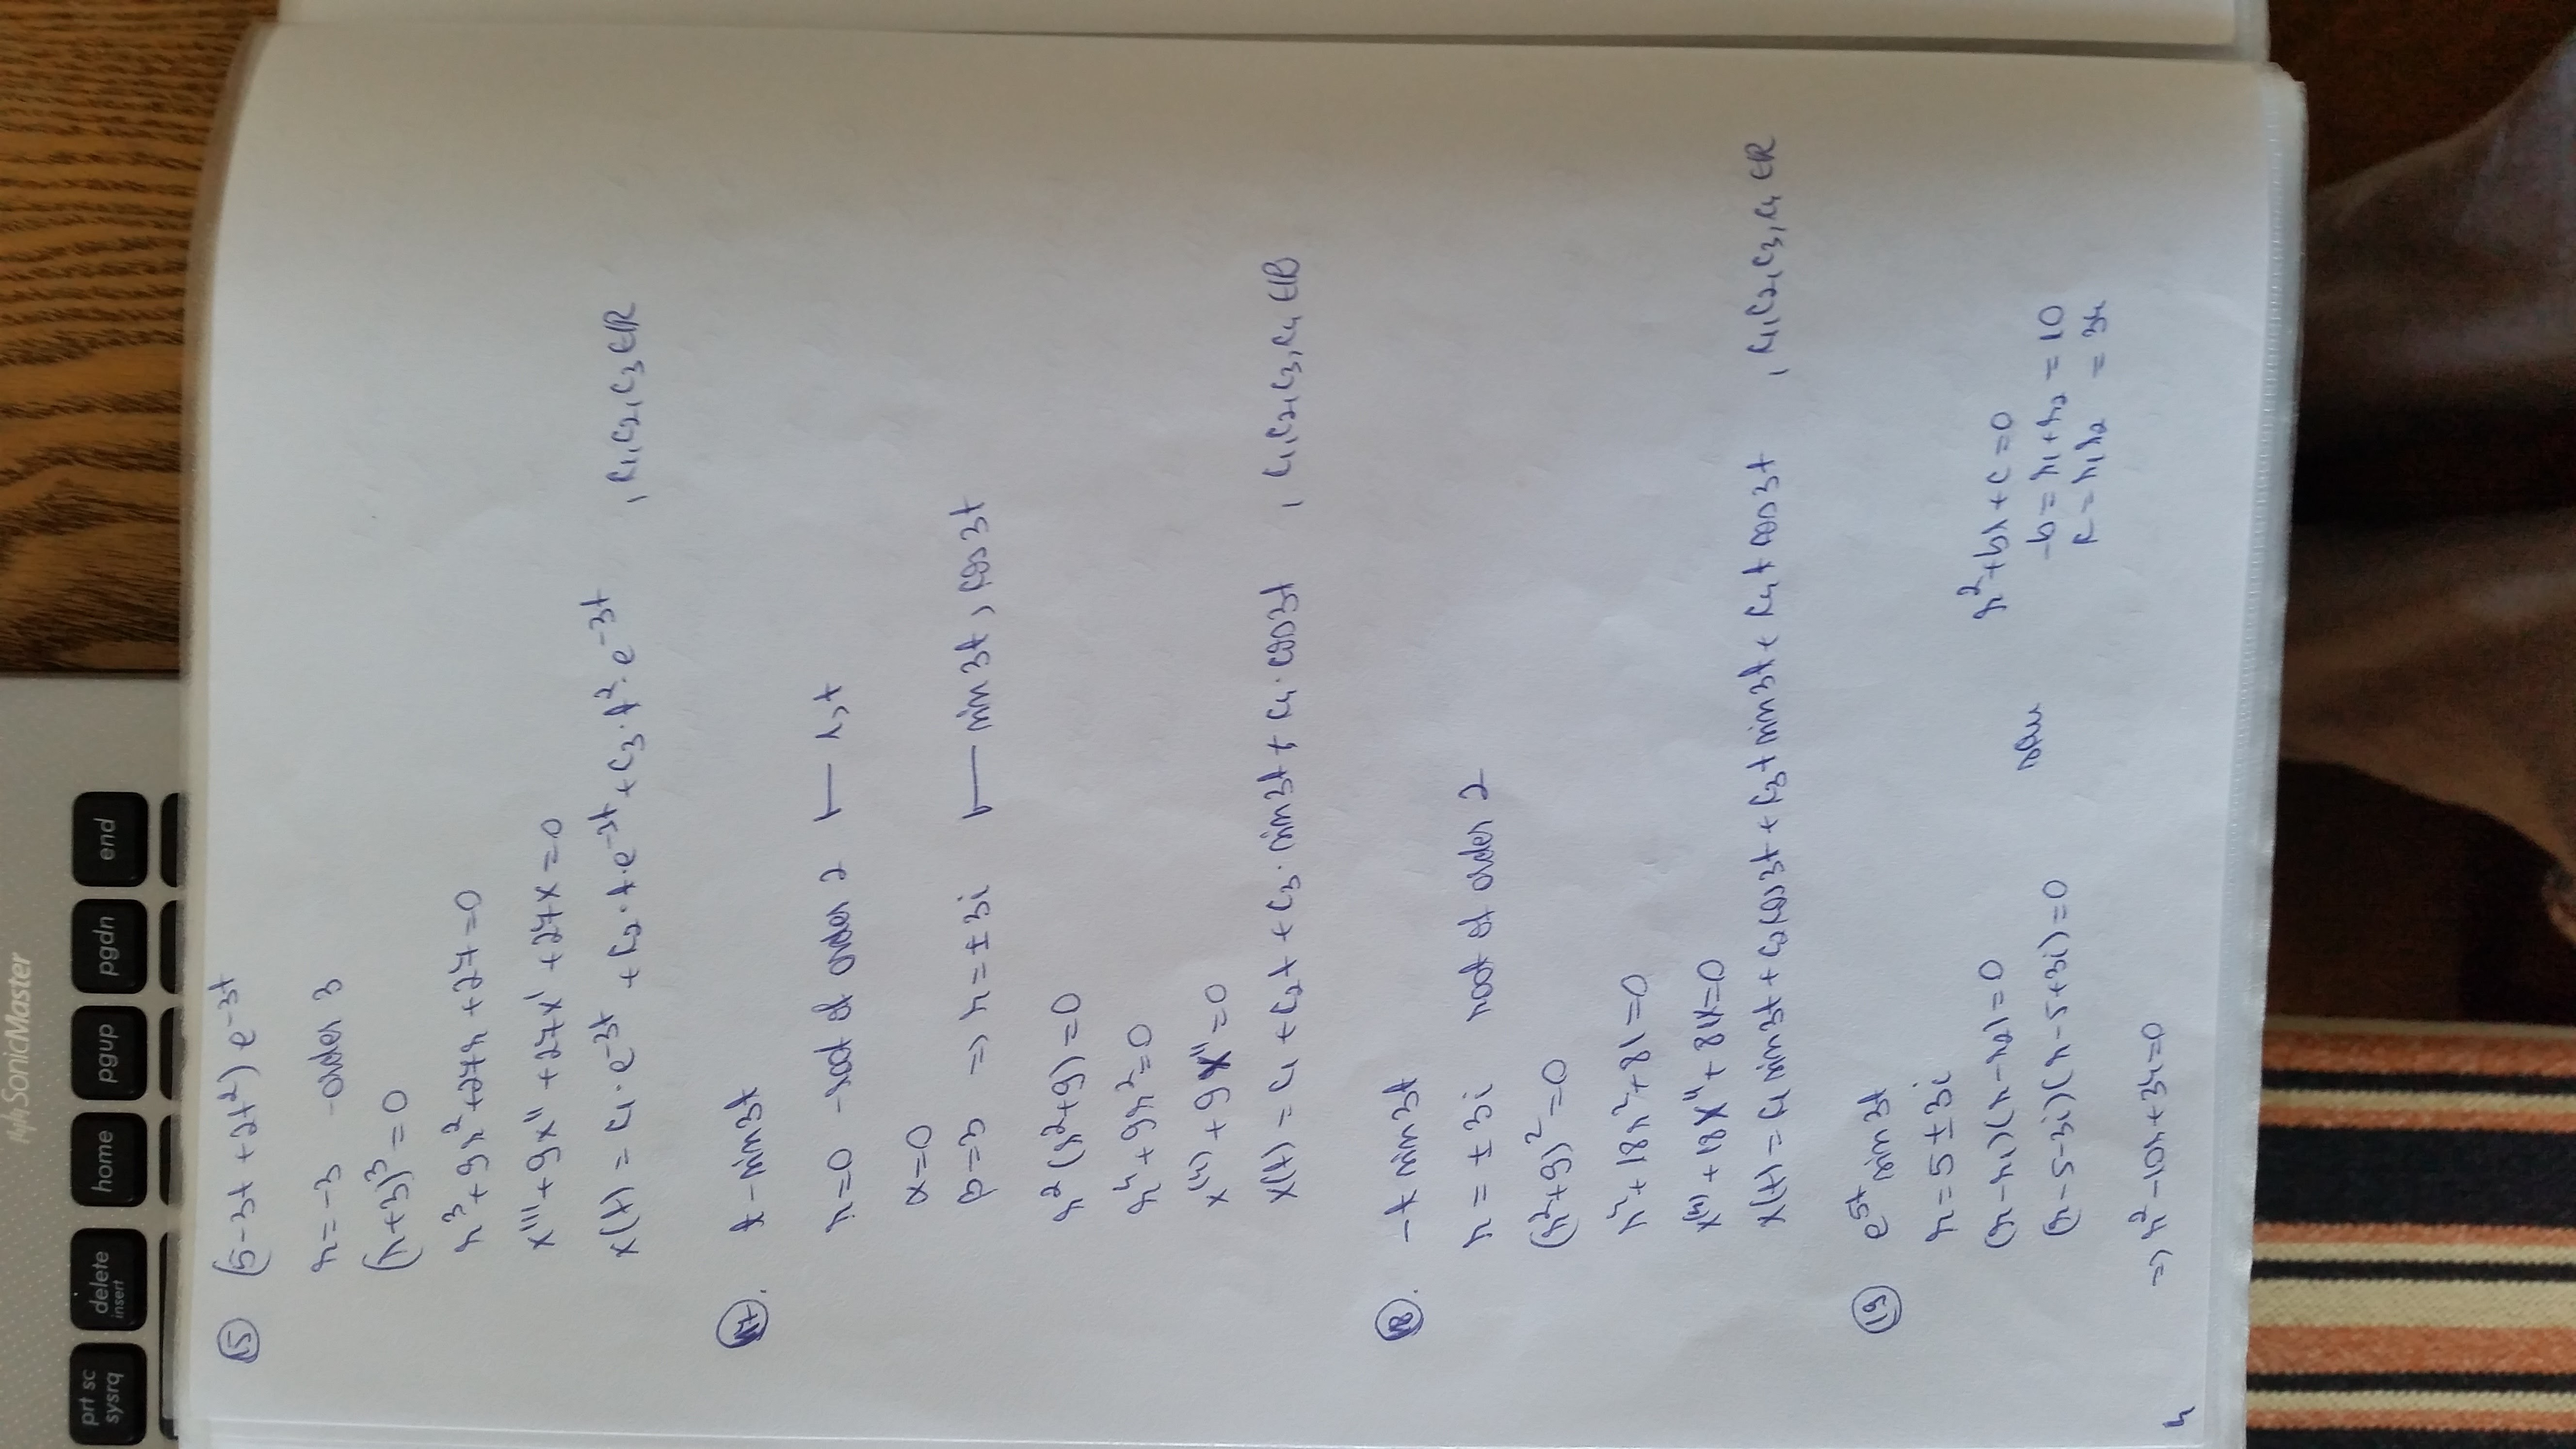 SonicMaster
prt sc
sysrq
delete
insert
home
pgup
pgdn
end
15 (5-3t+2t²) e^-3t
r=-3 -order 3
(r+3)³=0
r³+9r²+27r+27=0
x'''+9x''+27x'+27x=0
x(t)=c₁·e^-3t+c₂·t·e^-3t+c₃·t²·e^-3t , c₁,c₂,c₃∈ℝ
17. t-sin3t
r=0 -root of order 2 ⟼ 1,t
α=0
β=3 => r=±3i ⟼ sin3t, cos3t
r²(r²+9)=0
r⁴+9r²=0
x⁽⁴⁾+9x''=0
x(t)=c₁+c₂t+c₃·sin3t+c₄·cos3t , c₁,c₂,c₃,c₄∈ℝ
18. -t sin3t
r=±3i root of order 2
(r²+9)²=0
r⁴+18r²+81=0
x⁽⁴⁾+18x''+81x=0
x(t)=c₁sin3t+c₂cos3t+c₃tsin3t+c₄tcos3t , c₁,c₂,c₃,c₄∈ℝ
19 e^5t sin3t
r=5±3i
(r-r₁)(r-r₂)=0
(r-5-3i)(r-5+3i)=0
sau
r²+br+c=0
-b=r₁+r₂=10
c=r₁r₂=34
=> r²-10r+34=0
4